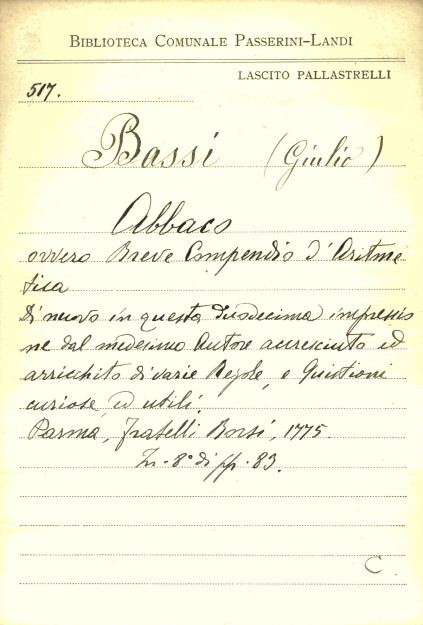 BIBLIOTECA COMUNALE PASSERINI-LANDI
LASCITO PALLASTRELLI
517.
Bassi (Giulio)
Abbaco
ovvero Breve Compendio d'Aritme
tica
Di nuovo in questa duodecima impressio
ne dal medesimo Autore accresciuto ed
arricchito di varie Regole, e Quistioni
curiose, ed utili.
Parma, fratelli Borsi, 1775.
In-8° di pp. 83.
C.